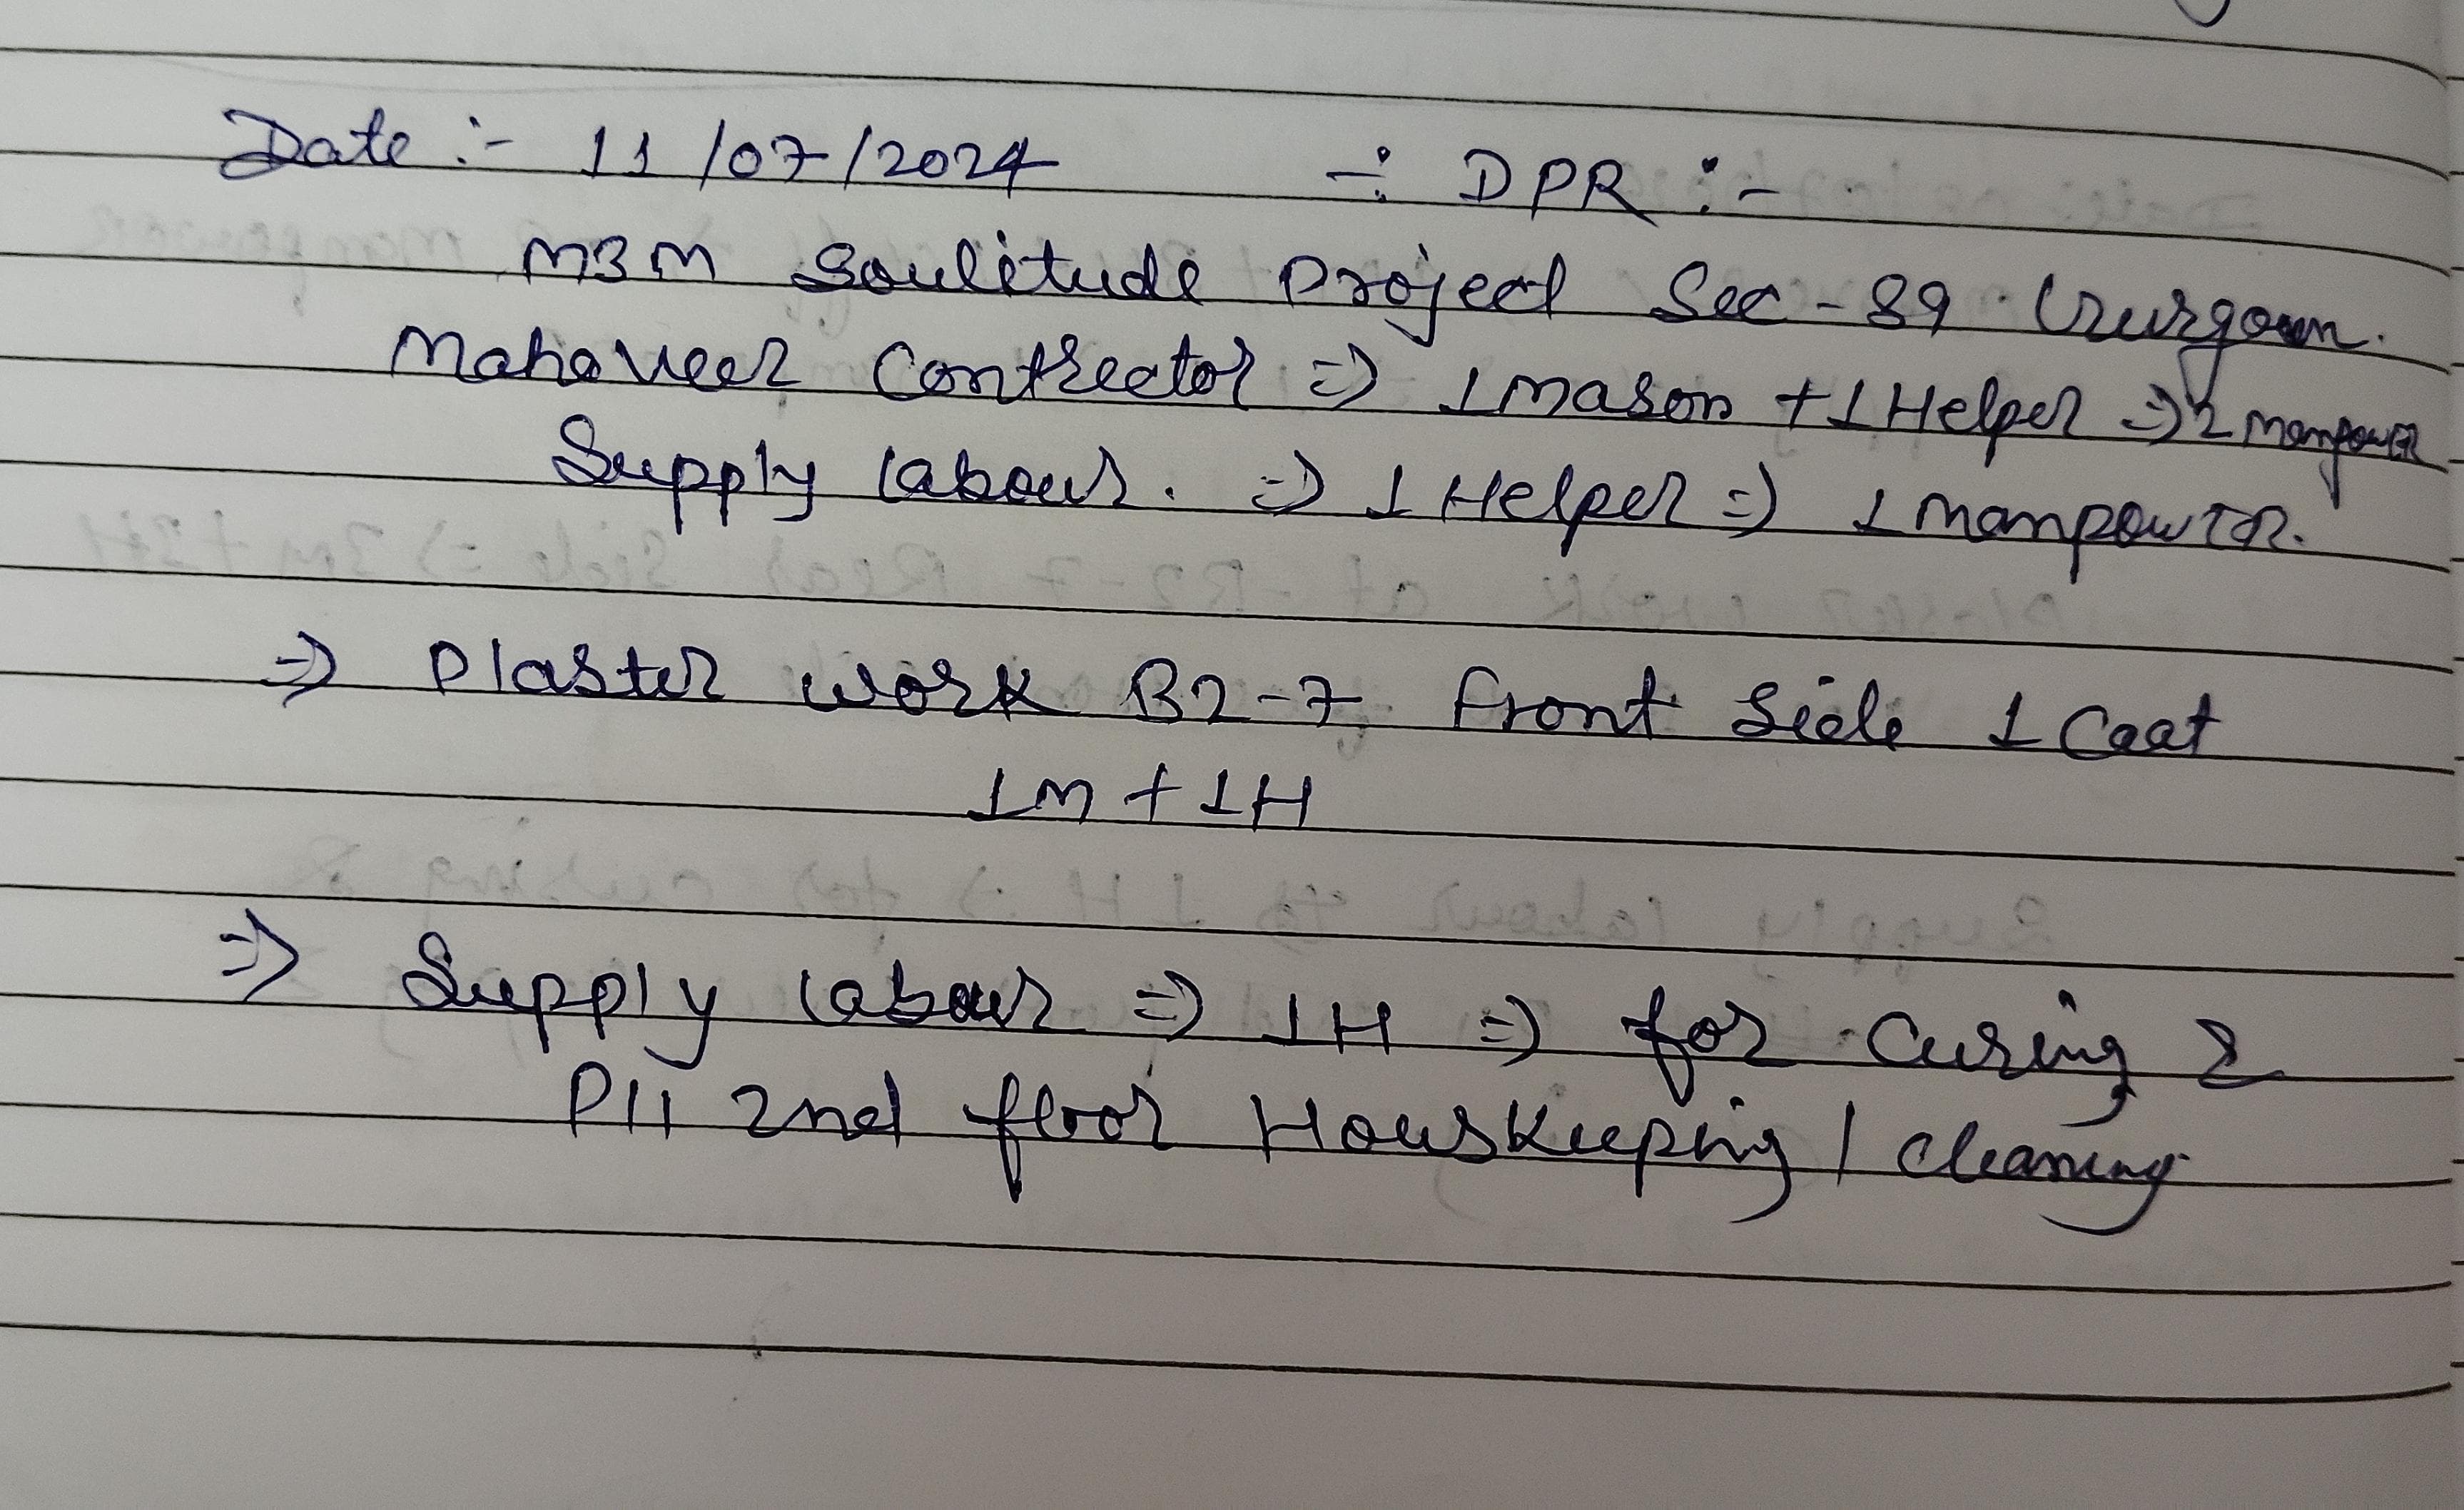 Date :- 11/07/2024 -: DPR :-
M3M Soulitude Project Sec-89 Gurgaon.
Mahaveer Contrector => 1 Mason + 1 Helper => 2 manpower
Supply labour. => 1 Helper => 1 manpower.
=> Plaster work B2-7 front side 1 Coat
1M + 1H
=> Supply labour => 1H => for Curing &
2nd floor Houskeeping / cleaning